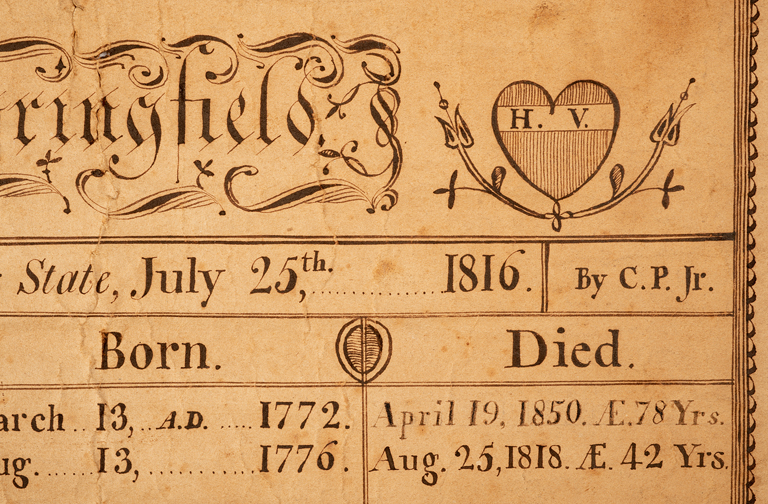 ringfield.
H. V.
State, July 25,th. 1816. By C. P. Jr.
Born. Died.
arch 13, A.D. 1772. April 19, 1850. Æ. 78 Yrs.
ug. 13, 1776. Aug. 25, 1818. Æ. 42 Yrs.